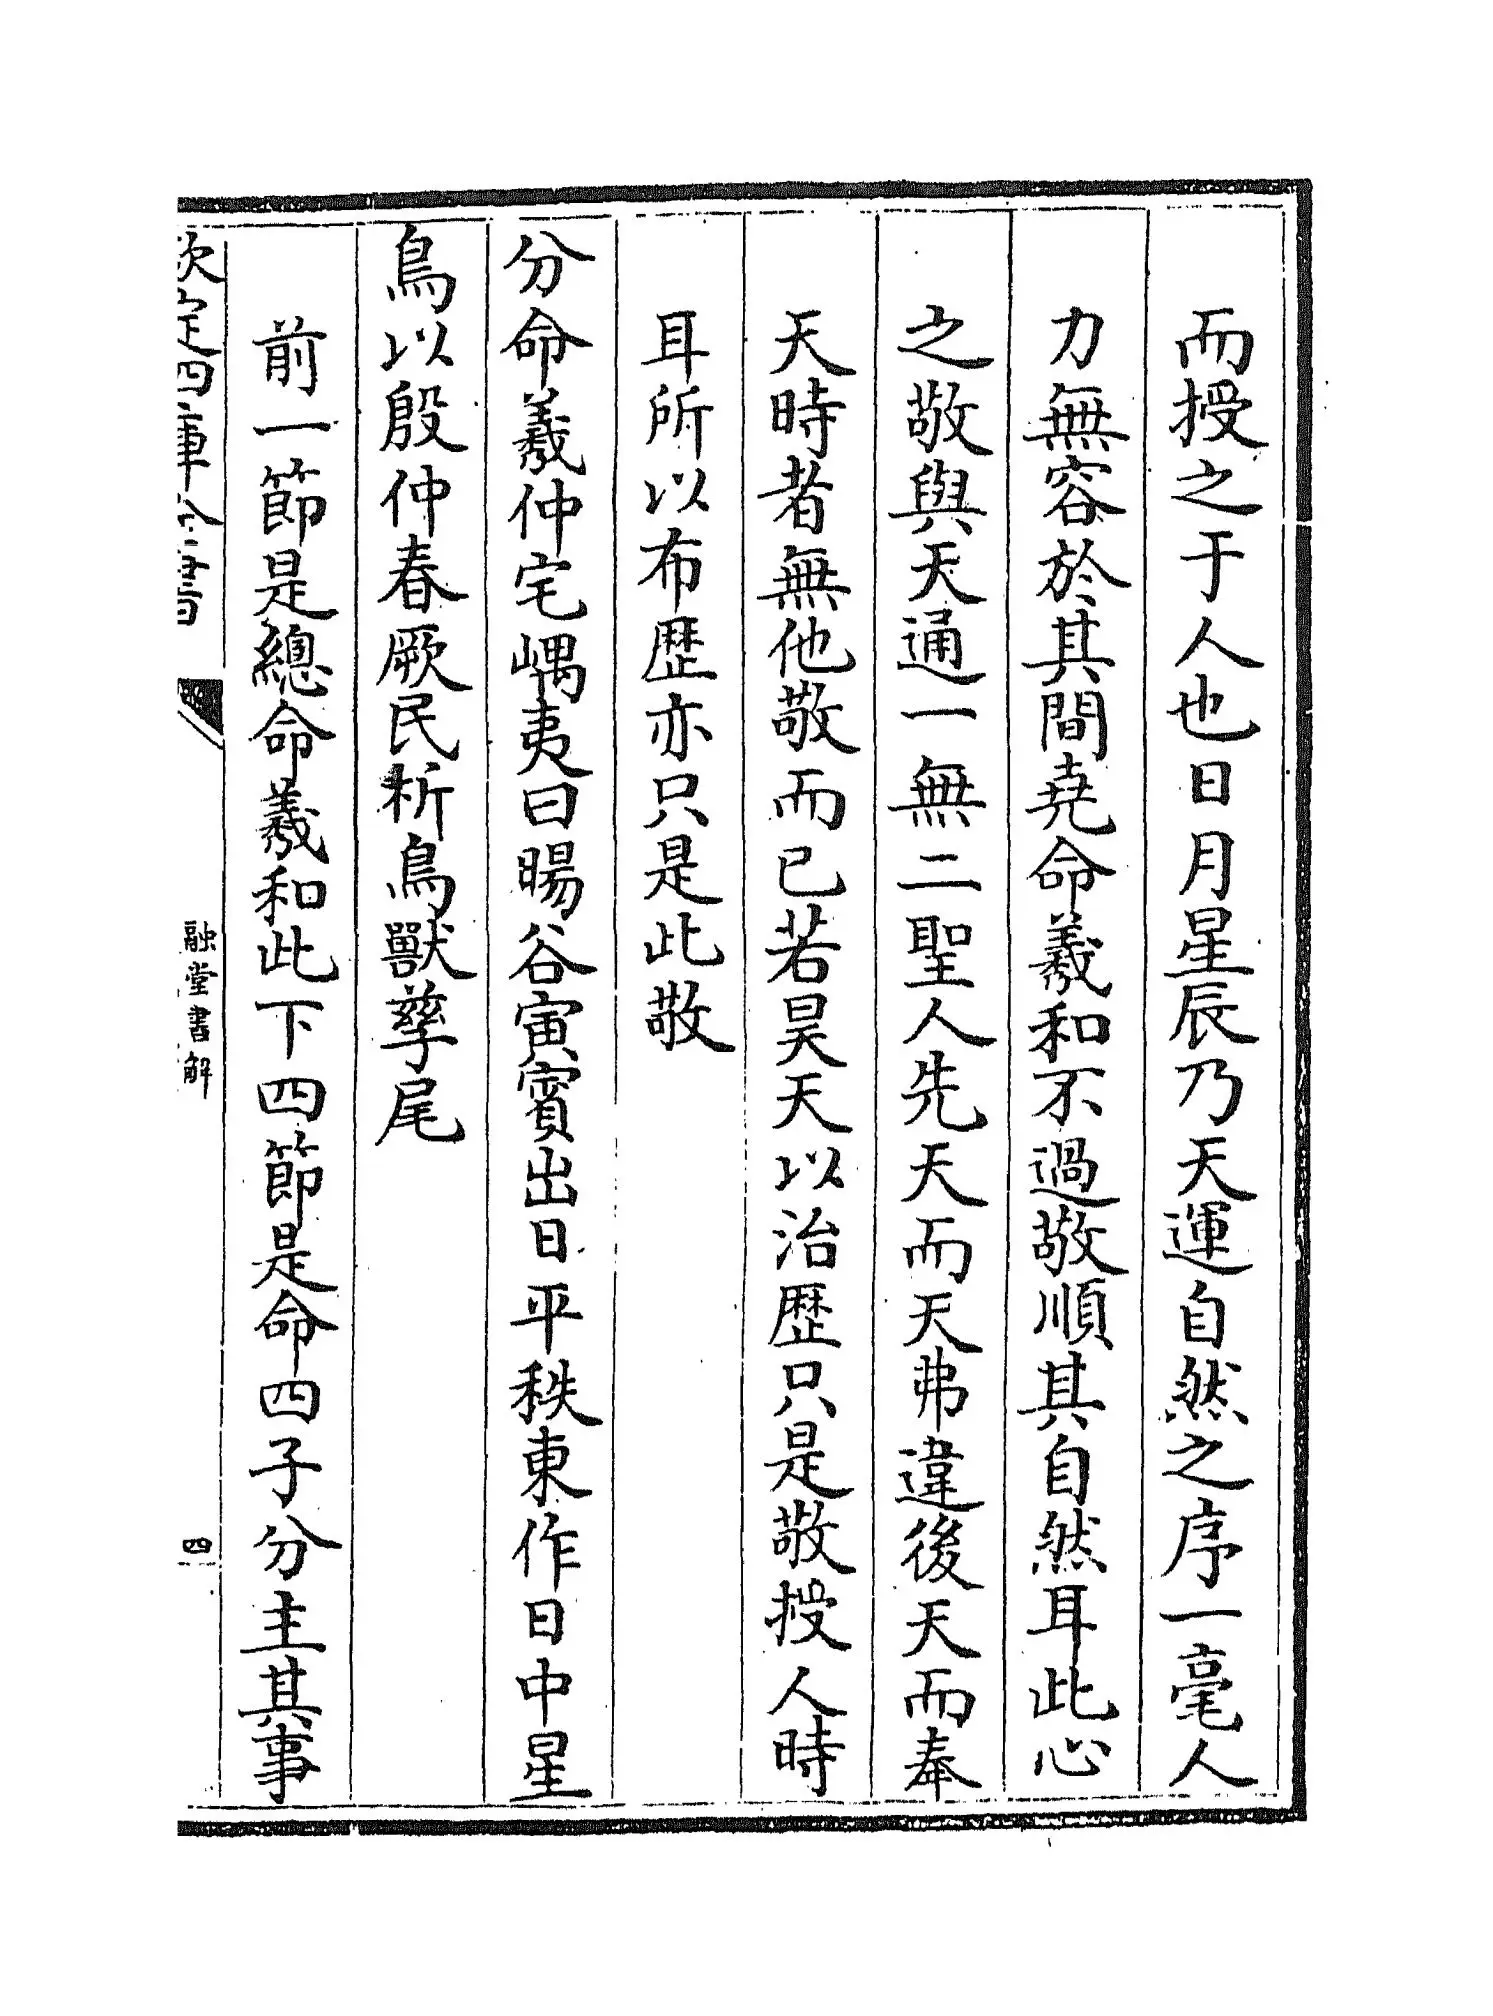 而授之于人也日月星辰乃天運自然之序一毫人
力無容於其間堯命羲和不過敬順其自然耳此心
之敬與天通一無二聖人先天而天弗違後天而奉
天時者無他敬而已若昊天以治歴只是敬授人時
耳所以布歴亦只是此敬
分命羲仲宅嵎夷曰暘谷寅賓出日平秩東作日中星
鳥以殷仲春厥民析鳥獸孳尾
前一節是總命羲和此下四節是命四子分主其事
欽定四庫全書
融堂書解
四